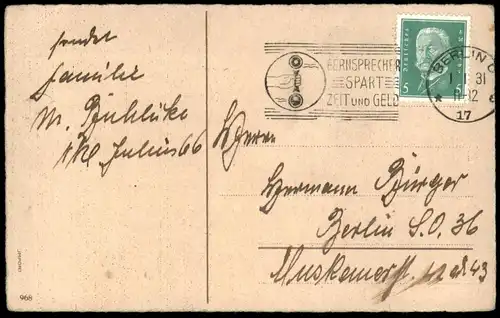 sendet
Familie
M.
Julius 66
FERNSPRECHER
SPART
ZEIT UND GELD
5
BERLIN O
1.1.31
17
Herrn
Hermann Bürger
Berlin S.O. 36
Muskauerst. 43
968